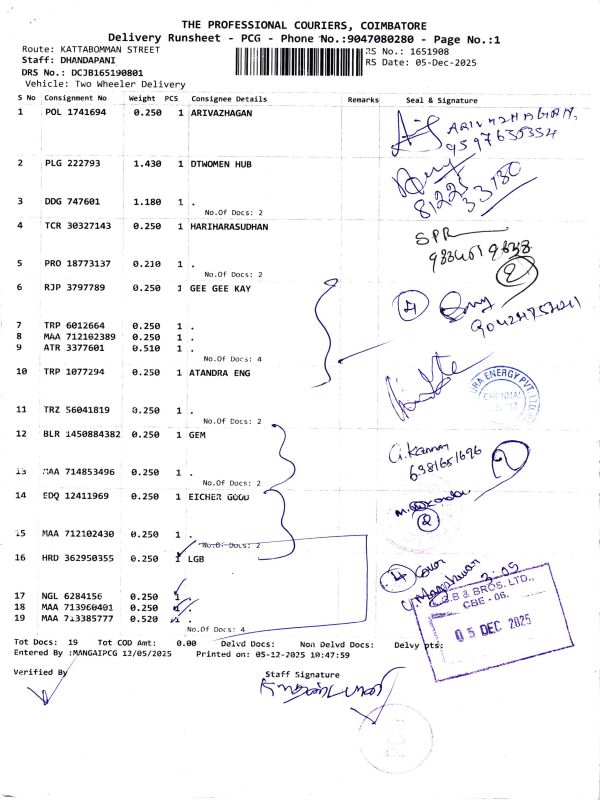 THE PROFESSIONAL COURIERS, COIMBATORE
Delivery Runsheet - PCG - Phone No.:9047080280 - Page No.:1
Route: KATTABOMMAN STREET
RS No.: 1651908
Staff: DHANDAPANI
RS Date: 05-Dec-2025
DRS No.: DCJB165190801
Vehicle: Two Wheeler Delivery
S No Consignment No Weight PCS Consignee Details Remarks Seal & Signature
1 POL 1741694 0.250 1 ARIVAZHAGAN
ARIVAZHAGAN,
2 PLG 222793 1.430 1 DTWOMEN HUB
81225 33180
3 DDG 747601 1.180 1 .
No.Of Docs: 2
4 TCR 30327143 0.250 1 HARIHARASUDHAN
SPR
5 PRO 18773137 0.210 1 .
No.Of Docs: 2
2
6 RJP 3797789 0.250 1 GEE GEE KAY
4
7 TRP 6012664 0.250 1 .
8 MAA 712102389 0.250 1 .
9 ATR 3377601 0.510 1 .
No.Of Docs: 4
10 TRP 1077294 0.250 1 ATANDRA ENG
URA ENERGY PVT. LTD.
CHENNAI
11 TRZ 56041819 0.250 1 .
No.Of Docs: 2
12 BLR 1450884382 0.250 1 GEM
G.Kannan
6381651696
2
13 MAA 714853496 0.250 1 .
No.Of Docs: 2
14 EDQ 12411969 0.250 1 EICHER GOOD
2
15 MAA 712102430 0.250 1 .
No.Of Docs: 2
16 HRD 362950355 0.250 1 LGB
4 Cover
3.05
17 NGL 6284156 0.250 1 .
18 MAA 713960401 0.250 1 .
19 MAA 713385777 0.520 1 .
No.Of Docs: 4
L.G.B & BROS. LTD.,
CBE - 06.
05 DEC 2025
Tot Docs: 19 Tot COD Amt: 0.00 Delvd Docs: Non Delvd Docs: Delvy pts:
Entered By :MANGAIPCG 12/05/2025 Printed on: 05-12-2025 10:47:59
Verified By Staff Signature